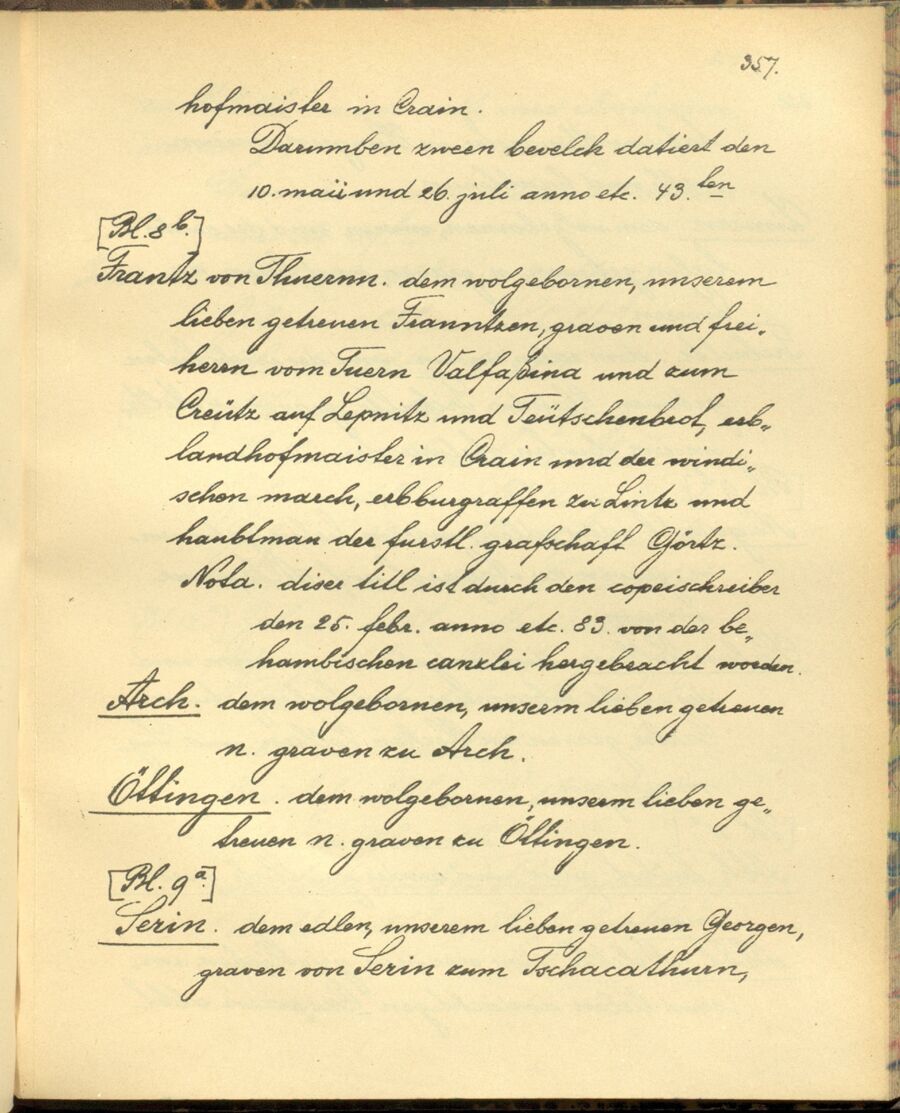 357.
hofmaister in Crain.
Darumben zween bevelch datiert den
10. maii und 26. juli anno etc. 43.ten
[Bl. 8b.]
Frantz von Thuernn. dem wolgebornen, unserem
lieben getreuen Franntzen, graven und frei„
herrn vom Tuern Valfaßina und zum
Creütz auf Lepnitz und Teütschenbrot, erb„
landhofmaister in Crain und der windi„
schen march, erbburgraffen zu Lintz und
haubtman der furstl. grafschaft Görtz.
Nota. diser titl ist durch den copeischreiber
den 25. febr. anno etc. 83. von der be„
hambischen canzlei hergebracht worden.
Arch. dem wolgebornen, unserm lieben getreuen
n. graven zu Arch.
Öttingen. dem wolgebornen, unserm lieben ge„
treuen n. graven zu Öttingen.
[Bl. 9a.]
Serin. dem edlen, unserem lieben getreuen Georgen,
graven von Serin zum Tschacathurn,